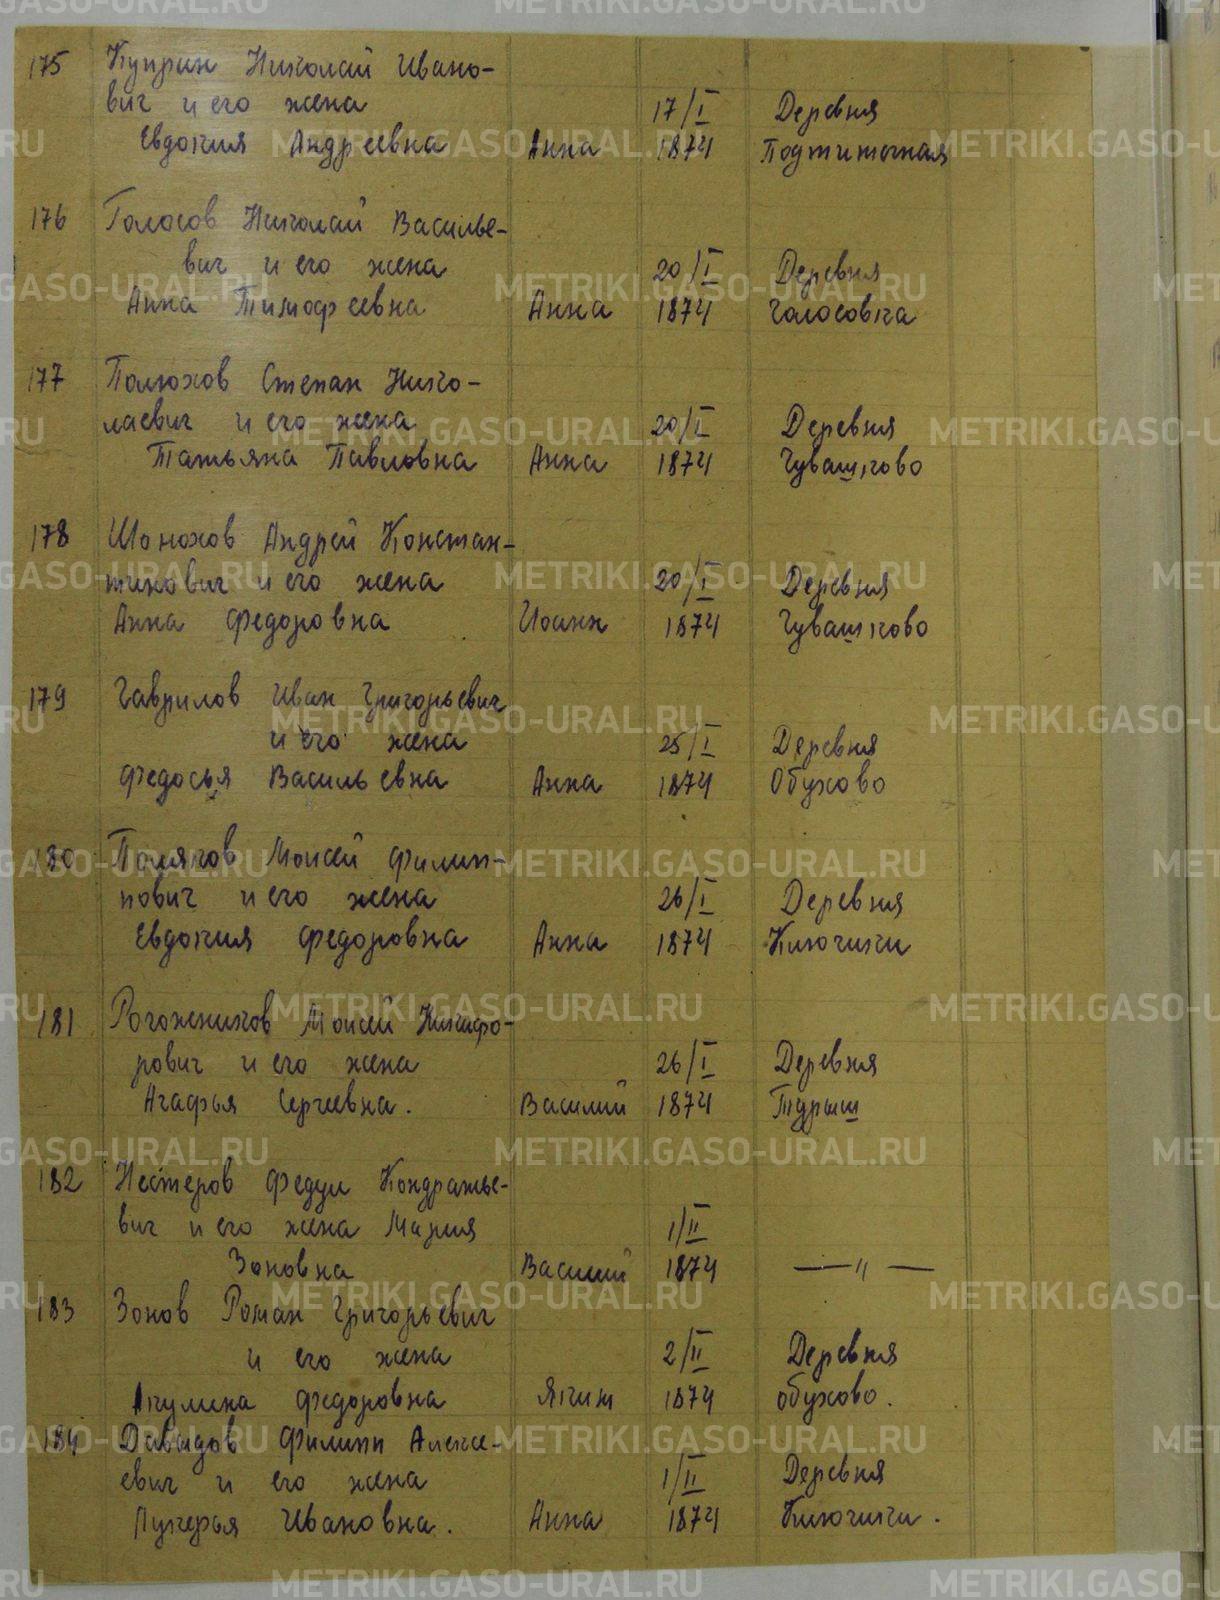 METRIKI.GASO-URAL.RU
175 Куприн Николай Ивано-
вич и его жена 17/I Деревня
Евдокия Андреевна Анна 1874
176 Голосов Николай Василье-
вич и его жена 20/I Деревня
Анна Тимофеевна Анна 1874 Голосовка
177 Полюхов Степан Нико-
лаевич и его жена 20/I Деревня
Татьяна Павловна Анна 1874 Чувашково
178 Шонохов Андрей Констан-
тинович и его жена 20/I Деревня
Анна Федоровна Иоанн 1874 Чувашково
179 Гаврилов Иван Григорьевич
и его жена 25/I Деревня
Федосья Васильевна Анна 1874 Обухово
180 Поляков Моисей Филип-
пович и его жена 26/I Деревня
Евдокия Федоровна Анна 1874 Ключики
181 Рогожников Моисей Никифо-
рович и его жена 26/I Деревня
Агафья Сергеевна. Василий 1874 Турыш
182 Нестеров Федул Кондратье-
вич и его жена Мария 1/II
Зоновна Василий 1874 —〃—
183 Зонов Роман Григорьевич
и его жена 2/II Деревня
Акулина Федоровна Яким 1874 Обухово.
184 Давыдов Филипп Алексе-
евич и его жена 1/II Деревня
Лукерья Ивановна. Анна 1874 Ключики.